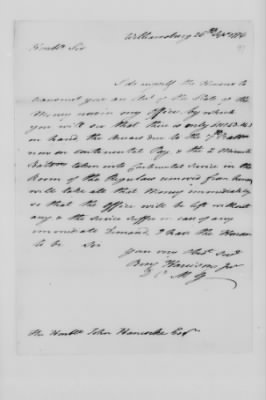 Williamsburg 26th 1776
Honble Sir
I do myself the Honour to
transmit you an Act of the State of the
Money now in my office, by which
you will see that there is only
on hand, the Arrears due to the
now on continental Pay & the 2 Minute
Battns taken into Continental Service in the
Room of the Regulars removed from hence
will take all that Money immediately
so that the office will be left without
any & the Service suffer in case of any
immediate Demand. I have the Honour
to be Sir
Your very Obedt Servt
Benj Harrison jur
D P M G
The Honble John Hancocke Esqr